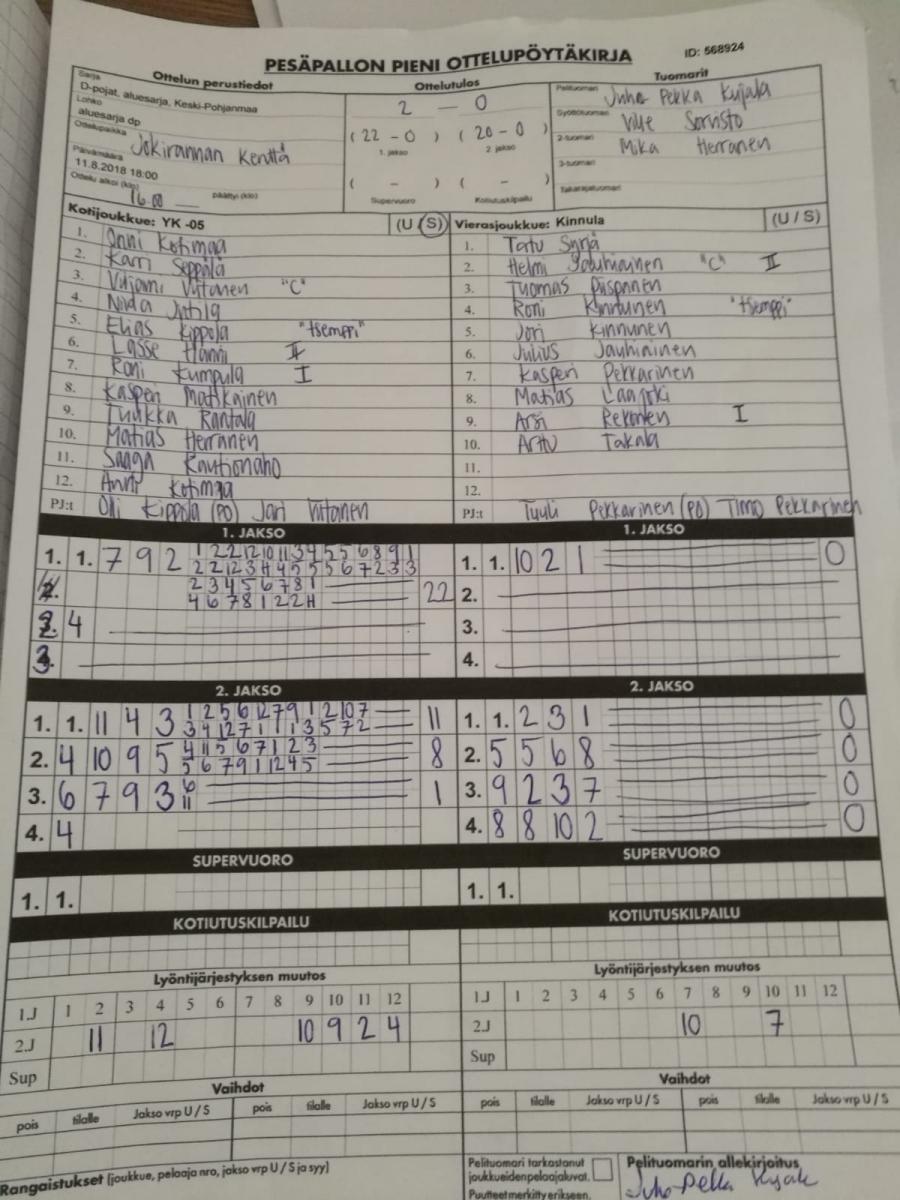 PESÄPALLON PIENI OTTELUPÖYTÄKIRJA
ID: 568924
Ottelun perustiedot
Sarja
D-pojat, aluesarja, Keski-Pohjanmaa
Lohko
aluesarja dp
Ottelupaikka Jokirannan Kenttä
Päivämäärä
11.8.2018 18:00
Ottelu alkoi (klo) 16.00 päättyi (klo)
Ottelutulos
2 — 0
( 22 - 0 ) ( 20 - 0 )
1. jakso 2. jakso
( - ) ( - )
Supervuoro Kotiutuskilpailu
Tuomarit
Pelituomari Juha Pekka Kujala
Syöttötuomari Ville Sorvisto
2-tuomari Mika Herranen
3-tuomari
Takarajatuomari
Kotijoukkue: YK -05 (U / S)
1. Onni Kotimaa
2. Karri Seppälä
3. Viljami Viitanen "C"
4. Niila
5. Elias Kippola "tsemppi"
6. Lasse Hanni II
7. Roni Kumpula I
8. Kasperi Matikainen
9. Tuukka Rantala
10. Matias Herranen
11. Saaga Rautionaho
12. Anni Kotimaa
PJ:t Olli Kippola (PO) Jari Viitanen
Vierasjoukkue: Kinnula (U / S)
1. Tatu Syrjä
2. Helmi Jauhiainen "C" II
3. Tuomas Piispanen
4. Roni Kinnunen "tsemppi"
5. Jori Kinnunen
6. Julius Jauhiainen
7. Kasperi Pekkarinen
8. Matias
9. Arsi Rekonen I
10. Arttu Takala
11.
12.
PJ:t Tuuli Pekkarinen (PO) Timo Pekkarinen
1. JAKSO
1. 1. 7 9 2 1 2 2 12 10 11 3 4 5 5 6 8 9 1
2 2 12 3 4 4 5 5 5 6 7 2 3 3
2 3 4 5 6 7 8 1
4 6 7 8 1 2 2 H 22
2. 4
3.
1. JAKSO
1. 1. 10 2 1 0
2.
3.
4.
2. JAKSO
1. 1. 11 4 3 1 2 5 6 12 7 9 1 2 10 7 11
3 4 12 7 1 1 1 3 5 7 2
2. 4 10 9 5 4 11 5 6 7 1 2 3 8
5 6 7 9 1 12 4 5
3. 6 7 9 3 6 1
11
4. 4
2. JAKSO
1. 1. 2 3 1 0
2. 5 5 6 8 0
3. 9 2 3 7 0
4. 8 8 10 2 0
SUPERVUORO
1. 1.
SUPERVUORO
1. 1.
KOTIUTUSKILPAILU
KOTIUTUSKILPAILU
Lyöntijärjestyksen muutos
1.J 1 2 3 4 5 6 7 8 9 10 11 12
2.J 11 12 10 9 2 4
Sup
Lyöntijärjestyksen muutos
1.J 1 2 3 4 5 6 7 8 9 10 11 12
2.J 10 7
Sup
Vaihdot
pois tilalle Jakso vrp U / S pois tilalle Jakso vrp U / S
Vaihdot
pois tilalle Jakso vrp U / S pois tilalle Jakso vrp U / S
Rangaistukset (joukkue, pelaaja nro, jakso vrp U / S ja syy)
Pelituomari tarkastanut
joukkueiden pelaajaluvat.
Puutteet merkitty erikseen.
Pelituomarin allekirjoitus
Juha-Pekka Kujala